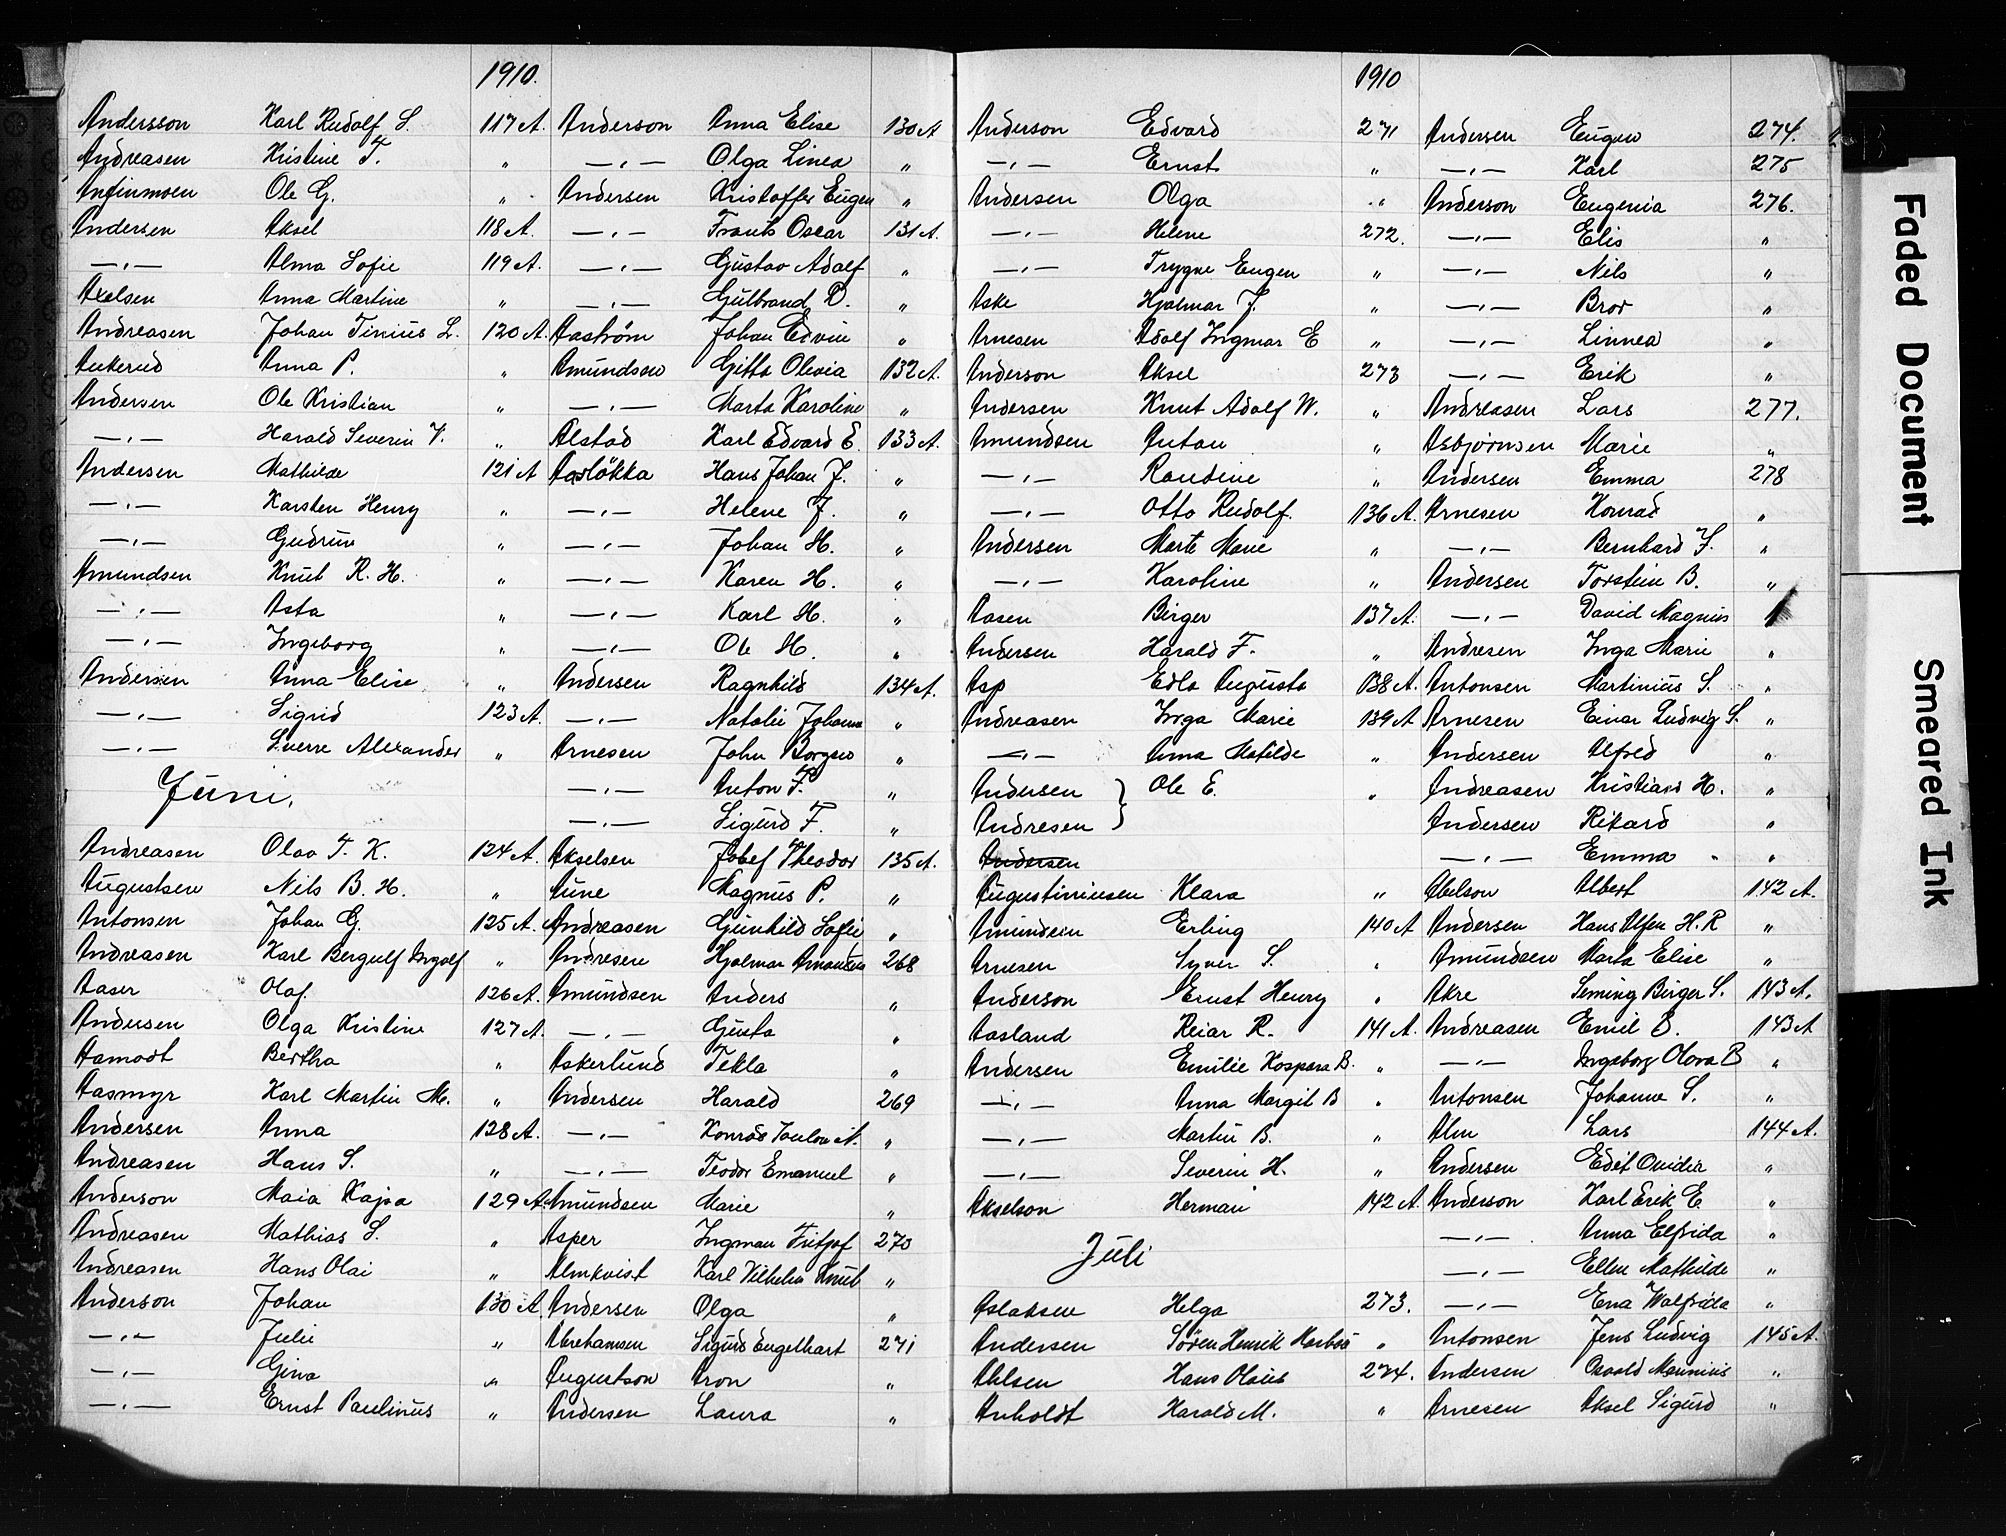 1910.
Andersson Karl Rudolf S. 117 A.
Andreasen Kristine T. "
Anfinmoen Ole G. "
Andersen Aksel 118 A.
—"— Alma Sofie 119 A.
Axelsen Anna Martine "
Andreasen Johan Tinius L. 120 A.
Ankerud Anna P. "
Andersen Ole Kristian "
—"— Harald Severin "
Andersen Mathilde 121 A
—"— Karsten Henry "
—"— Gudrun "
Amundsen Knut R. H. "
—"— Asta "
—"— Ingeborg "
Andersen Anna Elise "
—"— Sigrid 123 A.
—"— Sverre Alexander "
Juni.
Andreasen Olav T. K. 124 A.
Augustsen Nils B. H. "
Antonsen Johan G. 125 A.
Andreasen Karl Bergulf Ingolf "
Aaser Olaf. 126 A.
Andersen Olga Kristine 127 A.
Aamodt Bertha "
Aasmyr Karl Martin M. "
Andersen Anna 128 A.
Andreasen Hans S. "
Anderson Maia Kajsa 129 A.
Andreasen Mathias S. "
Andreasen Hans Olai "
Anderson Johan 130 A.
—"— Julie "
—"— Gina "
—"— Ernst Paulinus "
Anderson Anna Elise 130 A
—"— Olga Linea "
Andersen Kristoffer Eugen "
—"— Frants Oscar 131 A.
—"— Gustav Adolf "
—"— Gulbrand D. "
Aaström Johan Edvin "
Amundsen Gitta Olivia 132 A.
—"— Marta Karoline "
Alstad Karl Edvard E. 133 A.
Aasløkka Hans Johan J. "
—"— Helene J. "
—"— Johan H. "
—"— Karen H. "
—"— Karl H. "
—"— Ole H. "
Andersen Ragnhild 134 A.
—"— Natalie Johanne "
Arnesen John Borgen "
—"— Anton F. "
—"— Sigurd F. "
Akselsen Josef Theodor 135 A.
Aune Magnus P. "
Andreasen Gunhild Sofie "
Andresen Hjalmar Amandus 268
Amundsen Anders "
—"— Gusta "
Askerlund Tekla "
Andersen Harald 269
—"— Konrad "
—"— Teodor Emanuel "
Amundsen Marie "
Asper Ingman Fritjof 270
Almkvist Karl Vilhelm Knut "
Andersen Olga "
Abrahamsen Sigurd Engelhart 271
Augustson Aron "
Andersen Laura "
1910
Anderson Edvard 271
—"— Ernst "
Andersen Olga "
—"— Helene 272.
—"— Trygve Eugen "
Aske Hjalmar J. "
Arnesen Adolf Ingmar E "
Anderson Aksel 273
Andersen Knut Adolf W. "
Amundsen Anton "
—"— Randine "
—"— Otto Rudolf. 136 A.
Andersen Marte Marie "
—"— Karoline "
Aasen Birger 137 A.
Andersen Harald F. "
Asp Edla Augusta 138 A.
Andreasen Inga Marie 139 A
—"— Anna Matilde "
Andersen } Ole E. "
Andresen }
Andersen
Augustiniusen Klara "
Amundsen Erling 140 A
Arnesen Syver S. "
Anderson Ernst Henry "
Aasland Reiar R. 141 A.
Andersen Emilie Kaspara B. "
—"— Anna Margit B "
—"— Martin B. "
—"— Severin H. "
Akselson Herman 142 A.
Juli
Aslaksen Helga 273.
Andersen Sören Henrik "
Ahlsen Hans Olaus 274.
Anholdt Harald M. "
Andersen Eugen 274.
—"— Karl 275
Anderson Eugenia 276.
—"— Elis "
—"— Nils "
—"— Bror "
—"— Linnea "
—"— Erik "
Andreasen Lars 277.
Asbjørnsen Marie "
Andersen Emma 278
Arnesen Konrad "
—"— Bernhard J. "
Andersen Torstein B. "
—"— David Magnus
Andresen Inga Marie "
Antonsen Martinius S. "
Arnesen Einar Ludvig S. "
Andersen Alfred "
Andreasen Kristians H. "
Andersen Rikard "
—"— Emma "
Abelson Albert 142 A.
Andersen Hans H. R "
Amundsen Marta Elise "
Akre Seming Birger S. 143 A.
Andreasen Emil E. 143 A
—"— Ingeborg Olava B "
Antonsen Johanne S. "
Alm Lars 144 A.
Andersen Edit Ovidia "
Anderson Karl Erik E. "
—"— Anna Elfrida "
—"— Ellen Mathilde "
—"— Eva Walfrida "
Antonsen Jens Ludvig 145 A.
Andersen Osvald "
Arnesen Aksel Sigurd "
Faded Document
Smeared Ink